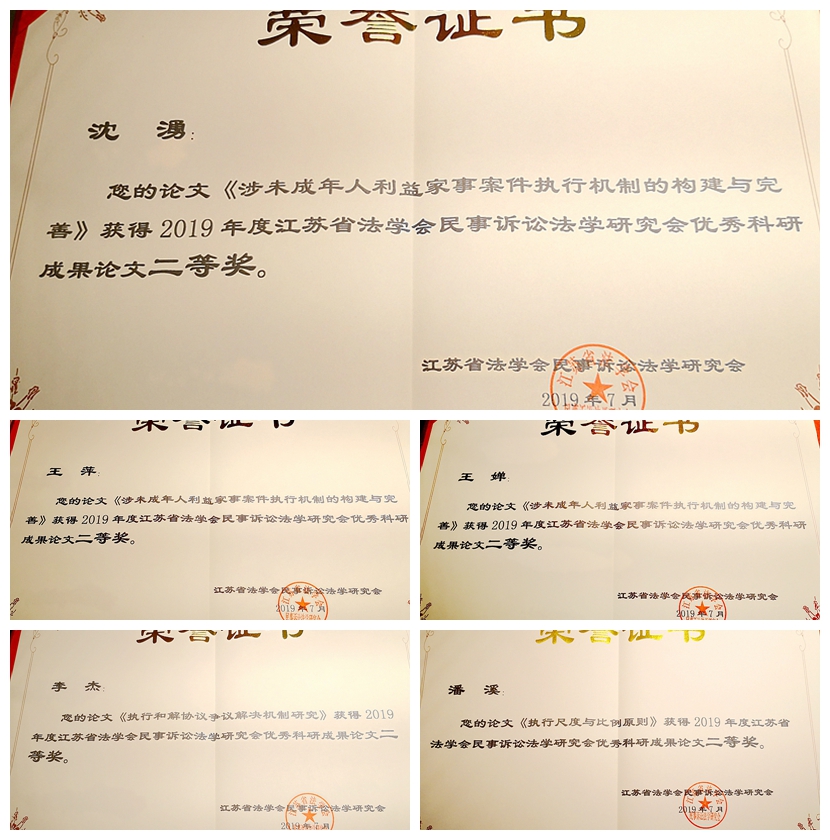 荣誉证书
沈 湧:
您的论文《涉未成年人利益家事案件执行机制的构建与完
善》获得 2019 年度江苏省法学会民事诉讼法学研究会优秀科研
成果论文二等奖。
江苏省法学会民事诉讼法学研究会
2019 年 7 月
荣誉证书
王 萍:
您的论文《涉未成年人利益家事案件执行机制的构建与完
善》获得 2019 年度江苏省法学会民事诉讼法学研究会优秀科研
成果论文二等奖。
江苏省法学会民事诉讼法学研究会
2019 年 7 月
荣誉证书
王 婵:
您的论文《涉未成年人利益家事案件执行机制的构建与完
善》获得 2019 年度江苏省法学会民事诉讼法学研究会优秀科研
成果论文二等奖。
江苏省法学会民事诉讼法学研究会
2019 年 7 月
荣誉证书
李 杰:
您的论文《执行和解协议争议解决机制研究》获得 2019
年度江苏省法学会民事诉讼法学研究会优秀科研成果论文二
等奖。
江苏省法学会民事诉讼法学研究会
2019 年 7 月
荣誉证书
潘 溪:
您的论文《执行尺度与比例原则》获得 2019 年度江苏省
法学会民事诉讼法学研究会优秀科研成果论文二等奖。
江苏省法学会民事诉讼法学研究会
2019 年 7 月